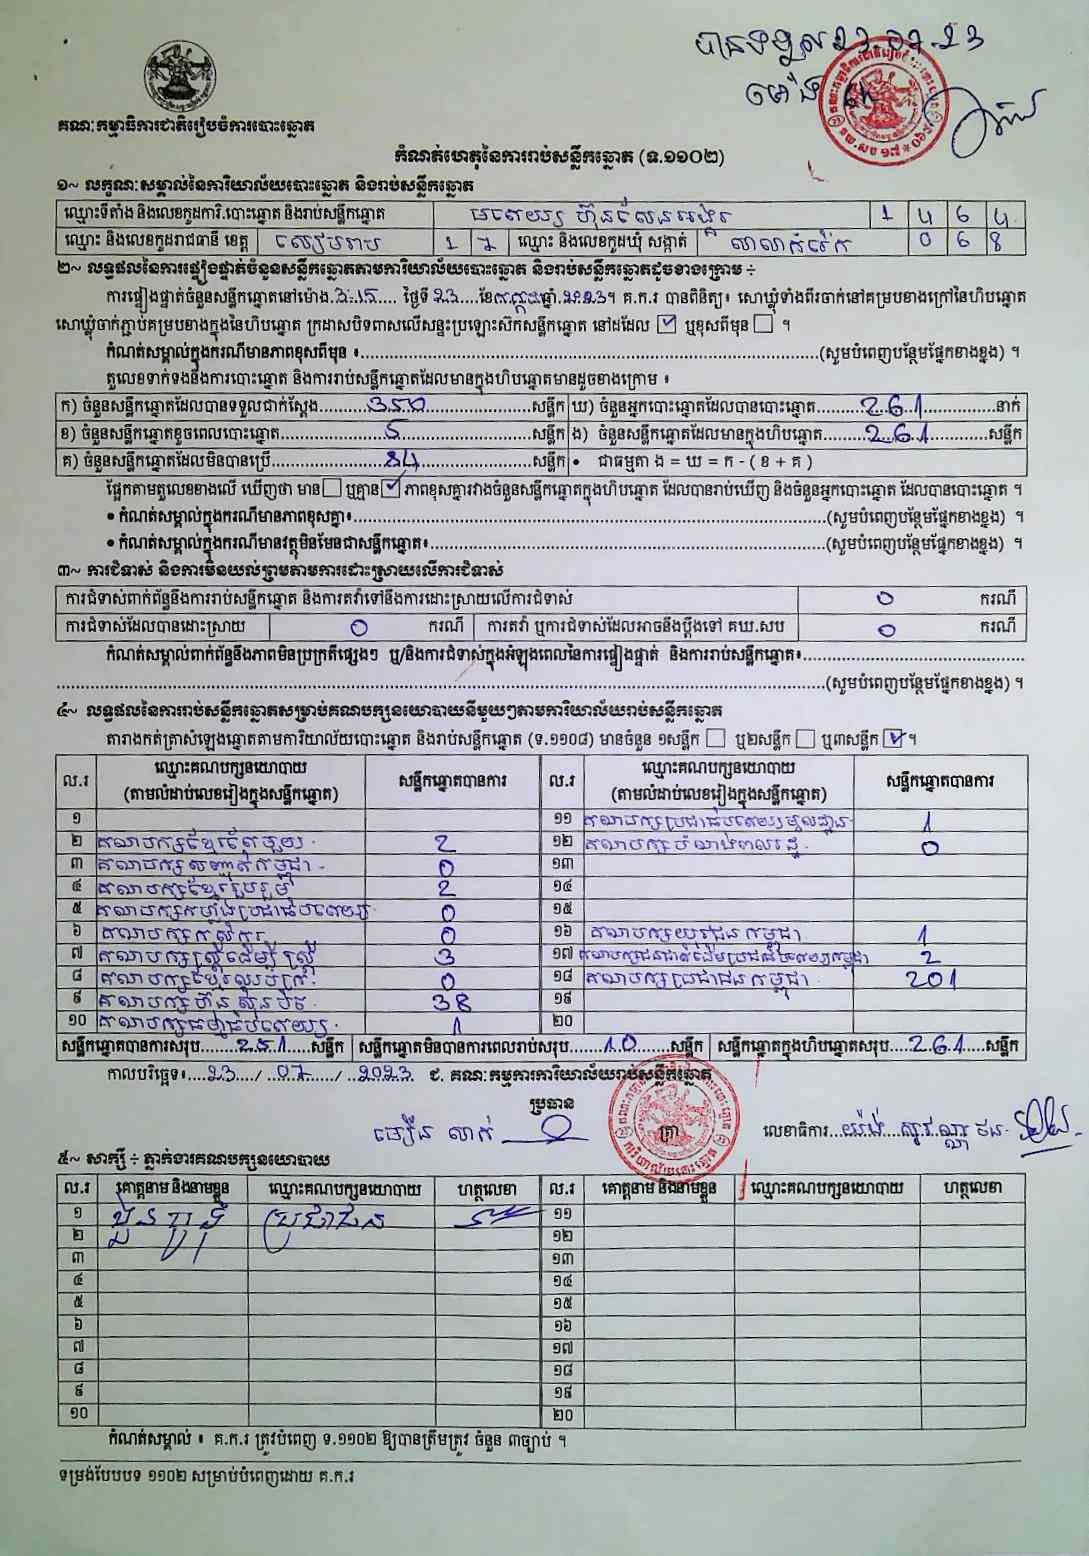 បានទទួល 23.07.23
ម៉ោង
គណៈកម្មាធិការជាតិរៀបចំការបោះឆ្នោត
កំណត់ហេតុនៃការរាប់សន្លឹកឆ្នោត (ទ.១១០២)
១~ លក្ខណៈសម្គាល់នៃការិយាល័យបោះឆ្នោត និងរាប់សន្លឹកឆ្នោត
ឈ្មោះទីតាំង និងលេខកូដការិ.បោះឆ្នោត និងរាប់សន្លឹកឆ្នោត ហ៊ុនសែនអង្គរ 1 4 6 4
ឈ្មោះ និងលេខកូដរាជធានី ខេត្ត សៀមរាប 1 7 ឈ្មោះ និងលេខកូដឃុំ សង្កាត់ សាលាកំរើក 0 6 8
២~ លទ្ធផលនៃការផ្ទៀងផ្ទាត់ចំនួនសន្លឹកឆ្នោតតាមការិយាល័យបោះឆ្នោត និងរាប់សន្លឹកឆ្នោតដូចខាងក្រោម ÷
ការផ្ទៀងផ្ទាត់ចំនួនសន្លឹកឆ្នោតនៅម៉ោង.3:15.... ថ្ងៃទី 23....ខែកក្កដាឆ្នាំ.2023។ គ.ក.រ បានពិនិត្យ៖ សោឃ្លុំទាំងពីរចាក់នៅគម្របខាងក្រៅនៃហិបឆ្នោត
សោឃ្លុំចាក់ភ្ជាប់គម្របខាងក្នុងនៃហិបឆ្នោត ក្រដាសបិទពាសលើសន្ទះប្រឡោះស៊កសន្លឹកឆ្នោត នៅដដែល ☑ ឬខុសពីមុន ☐ ។
កំណត់សម្គាល់ក្នុងករណីមានភាពខុសពីមុន ៖..........(សូមបំពេញបន្ថែមផ្នែកខាងខ្នង) ។
តួលេខទាក់ទងនឹងការបោះឆ្នោត និងការរាប់សន្លឹកឆ្នោតដែលមានក្នុងហិបឆ្នោតមានដូចខាងក្រោម ៖
ក) ចំនួនសន្លឹកឆ្នោតដែលបានទទួលជាក់ស្តែង..........350..........សន្លឹក ឃ) ចំនួនអ្នកបោះឆ្នោតដែលបានបោះឆ្នោត..........261..........នាក់
ខ) ចំនួនសន្លឹកឆ្នោតខូចពេលបោះឆ្នោត..........5..........សន្លឹក ង) ចំនួនសន្លឹកឆ្នោតដែលមានក្នុងហិបឆ្នោត..........261..........សន្លឹក
គ) ចំនួនសន្លឹកឆ្នោតដែលមិនបានប្រើ..........84..........សន្លឹក • ជាធម្មតា ង = ឃ = ក - ( ខ + គ )
ផ្អែកតាមតួលេខខាងលើ ឃើញថា មាន ☐ ឬគ្មាន ☑ ភាពខុសគ្នារវាងចំនួនសន្លឹកឆ្នោតក្នុងហិបឆ្នោត ដែលបានរាប់ឃើញ និងចំនួនអ្នកបោះឆ្នោត ដែលបានបោះឆ្នោត ។
• កំណត់សម្គាល់ក្នុងករណីមានភាពខុសគ្នា៖..........(សូមបំពេញបន្ថែមផ្នែកខាងខ្នង) ។
• កំណត់សម្គាល់ក្នុងករណីមានវត្ថុមិនមែនជាសន្លឹកឆ្នោត៖..........(សូមបំពេញបន្ថែមផ្នែកខាងខ្នង) ។
៣~ ការជំទាស់ និងការមិនយល់ព្រមតាមការដោះស្រាយលើការជំទាស់
ការជំទាស់ពាក់ព័ន្ធនឹងការរាប់សន្លឹកឆ្នោត និងការតវ៉ាទៅនឹងការដោះស្រាយលើការជំទាស់ 0 ករណី
ការជំទាស់ដែលបានដោះស្រាយ 0 ករណី ការតវ៉ា ឬការជំទាស់ដែលអាចនឹងប្តឹងទៅ គឃ.សប 0 ករណី
កំណត់សម្គាល់ពាក់ព័ន្ធនឹងភាពមិនប្រក្រតីផ្សេងៗ ឬ/និងការជំទាស់ក្នុងអំឡុងពេលនៃការផ្ទៀងផ្ទាត់ និងការរាប់សន្លឹកឆ្នោត៖..........
..........(សូមបំពេញបន្ថែមផ្នែកខាងខ្នង) ។
៤~ លទ្ធផលនៃការរាប់សន្លឹកឆ្នោតសម្រាប់គណបក្សនយោបាយនីមួយៗតាមការិយាល័យរាប់សន្លឹកឆ្នោត
តារាងកត់ត្រាសំឡេងឆ្នោតតាមការិយាល័យបោះឆ្នោត និងរាប់សន្លឹកឆ្នោត (ទ.១១០៨) មានចំនួន ១សន្លឹក ☐ ឬ២សន្លឹក ☐ ឬ៣សន្លឹក ☑ ។
ល.រ ឈ្មោះគណបក្សនយោបាយ (តាមលំដាប់លេខរៀងក្នុងសន្លឹកឆ្នោត) សន្លឹកឆ្នោតបានការ ល.រ ឈ្មោះគណបក្សនយោបាយ (តាមលំដាប់លេខរៀងក្នុងសន្លឹកឆ្នោត) សន្លឹកឆ្នោតបានការ
១ ១១ គណបក្សប្រជាធិបតេយ្យមូលដ្ឋាន 1
២ គណបក្សខ្មែរតែមួយ 2 ១២ គណបក្ស 0
៣ គណបក្សសញ្ជាតិកម្ពុជា 0 ១៣
៤ គណបក្សខ្មែររួបរួម 2 ១៤
៥ គណបក្សកម្លាំងប្រជាធិបតេយ្យ 0 ១៥
៦ គណបក្សកសិករ 0 ១៦ គណបក្សយុវជនកម្ពុជា 1
៧ គណបក្សស្ត្រីដើម្បីស្ត្រី 3 ១៧ គណបក្សជនជាតិដើមប្រជាធិបតេយ្យកម្ពុជា 2
៨ គណបក្សខ្មែរឈប់ក្រ 0 ១៨ គណបក្សប្រជាជនកម្ពុជា 201
៩ គណបក្សហ៊្វុនស៊ិនប៉ិច 38 ១៩
១០ គណបក្សធម្មាធិបតេយ្យ 1 ២០
សន្លឹកឆ្នោតបានការសរុប......251......សន្លឹក សន្លឹកឆ្នោតមិនបានការពេលរាប់សរុប......10......សន្លឹក សន្លឹកឆ្នោតក្នុងហិបឆ្នោតសរុប....261....សន្លឹក
កាលបរិច្ឆេទ៖....23..../...07..../..2023 ជ. គណៈកម្មការការិយាល័យរាប់សន្លឹកឆ្នោត
ប្រធាន
ត្រា
លេខាធិការ
៥~ សាក្សី ÷ ភ្នាក់ងារគណបក្សនយោបាយ
ល.រ គោត្តនាម និងនាមខ្លួន ឈ្មោះគណបក្សនយោបាយ ហត្ថលេខា ល.រ គោត្តនាម និងនាមខ្លួន ឈ្មោះគណបក្សនយោបាយ ហត្ថលេខា
១ ប្រជាជន ១១
២ ១២
៣ ១៣
៤ ១៤
៥ ១៥
៦ ១៦
៧ ១៧
៨ ១៨
៩ ១៩
១០ ២០
កំណត់សម្គាល់ ៖ គ.ក.រ ត្រូវបំពេញ ទ.១១០២ ឱ្យបានត្រឹមត្រូវ ចំនួន ៣ច្បាប់ ។
ទម្រង់បែបបទ ១១០២ សម្រាប់បំពេញដោយ គ.ក.រ